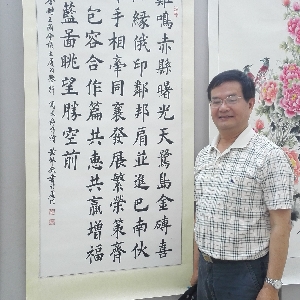 雞鳴赤縣曙光天鷺島金磚喜
緣俄印鄰邦肩並進巴南伙
手相牽同襄發展繁榮策齊
包容合作篇共惠共贏增福
藍啚眺望勝空前